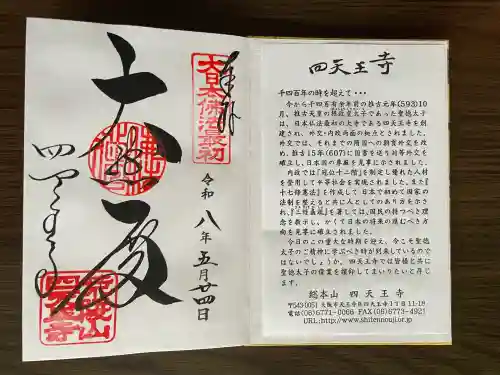 奉拝
大日本佛法最初
四天王寺
令和八年五月廿四日
四天王寺
千四百年の時を超えて・・・
今から千四百有余年前の推古元年(593)10
月、推古天皇の摂政皇太子であった聖徳太子
は、日本仏法最初の大寺である四天王寺を創
建され、外交・内政両面の拠点とされました。
外交では、それまでの隣国への朝貢外交を改
め、推古15年(607)に国書を送り対等外交を
確立し、日本国の尊厳を見事に示されました。
内政では『冠位十二階』を制定し優れた人材
を登用して平等社会を実現されました。また『
十七条憲法』を作成して日本で初めて国家の
法制を整えると共に人としてのあり方を示さ
れ、『三経義疏』を著しては、国民の持つべき理念
を教示し、かくて日本の将来の進むべき方
向を見事に確立されました。
今日のこの重大な時期を迎え、今こそ聖徳
太子のご精神に学ぶべき時が到来しているので
はないでしょうか。四天王寺では皆様と共に
聖徳太子の偉業を讃仰してまいりたいと存じ
ます。
総本山 四天王寺
〒543-0051 大阪市天王寺区四天王寺1丁目11-18
電話(06)6771-0066 FAX(06)6773-4921
URL:http://www.shitennouji.or.jp